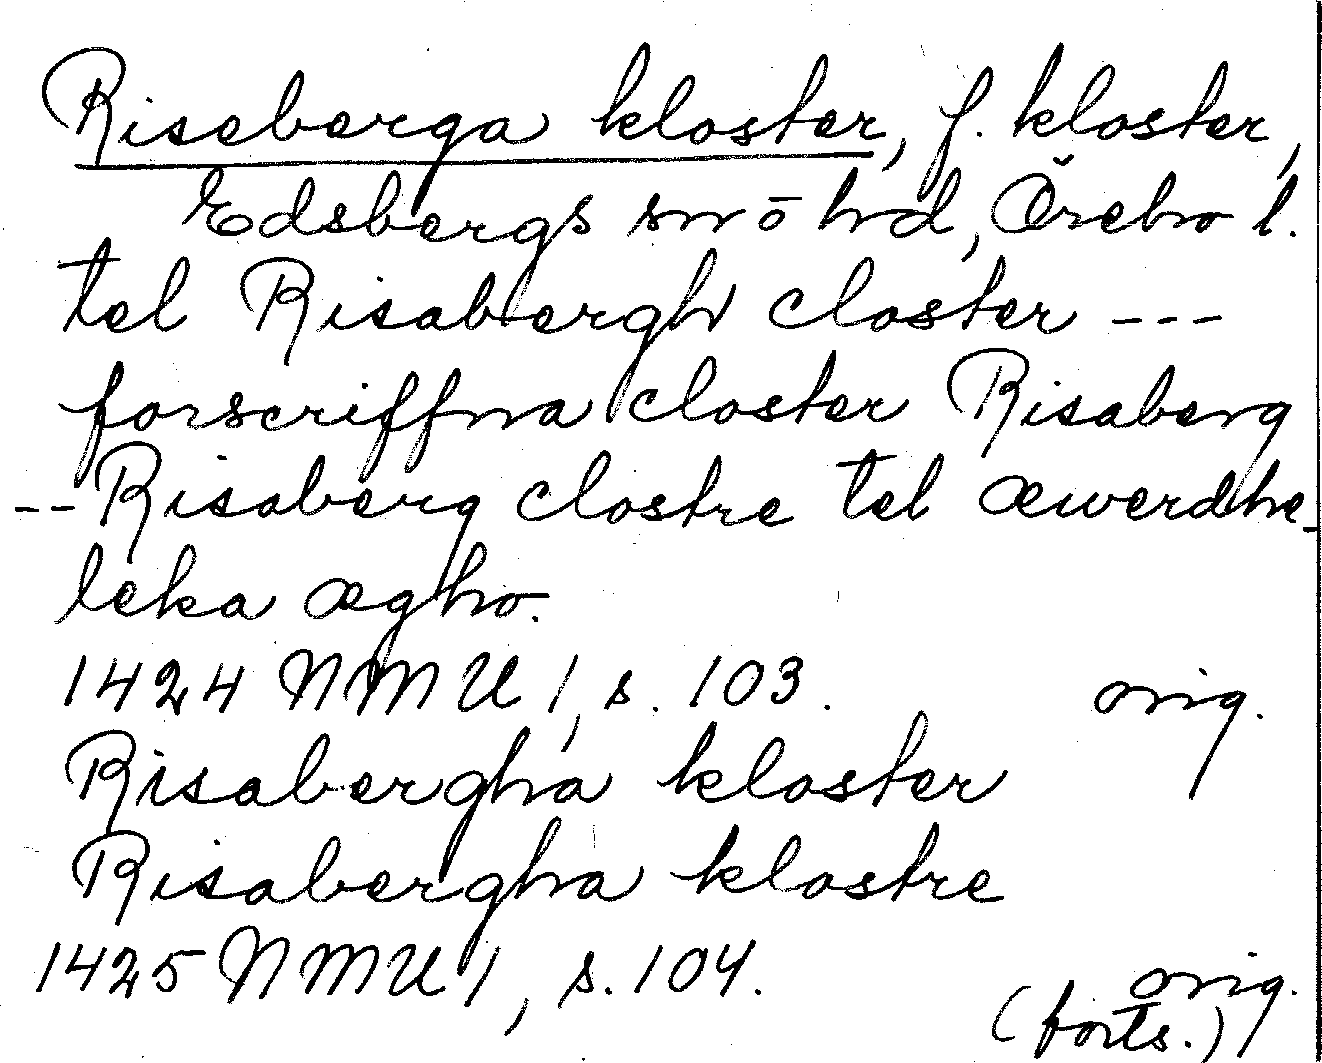 Riseberga kloster, f. kloster,
Edsbergs sn o hd, Örebro l.
tel Risabergh closter ---
forscriffna closter Risaberg
-- Risaberg clostre tel æwerdhe-
leka ægho.
1424 NMU 1, s. 103. orig.
Risabergha kloster
Risabergha klostre
1425 NMU 1, s. 104. orig.
(forts.)